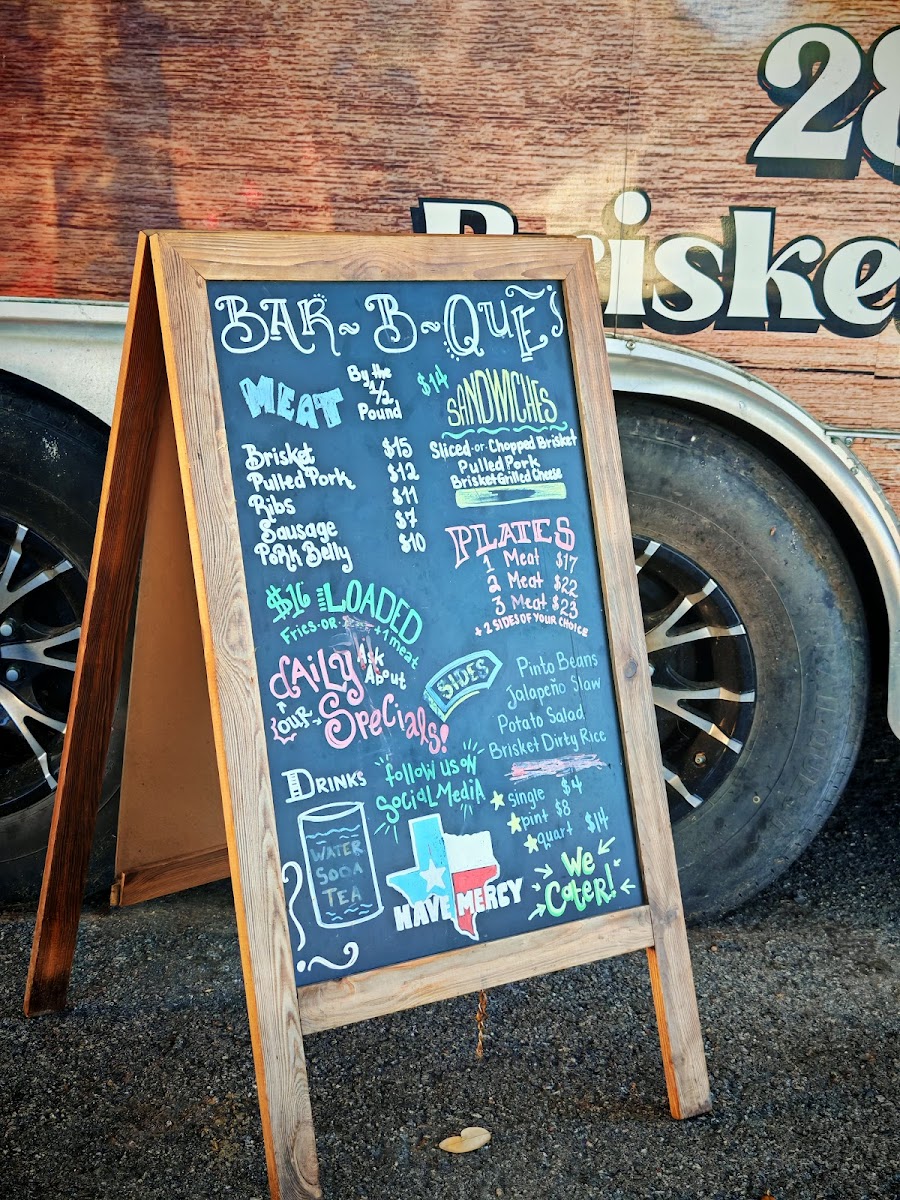 28
Briske
BAR-B-QUE
MEAT
By the
1/2
Pound
Brisket $15
Pulled Pork $12
Ribs $11
Sausage $7
Pork Belly $10
$14
SANDWICHES
Sliced-or-Chopped Brisket
Pulled Pork
Brisket Grilled Cheese
PLATES
1 Meat $17
2 Meat $22
3 Meat $23
+ 2 SIDES OF YOUR CHOICE
$16 LOADED
Fries-OR- +1 meat
Ask
About
OUR
daily
Specials!
SIDES
Pinto Beans
Jalapeño Slaw
Potato Salad
Brisket Dirty Rice
single $4
pint $8
quart $14
DRINKS
WATER
SODA
TEA
follow us on
Social Media
HAVE MERCY
We
Cater!